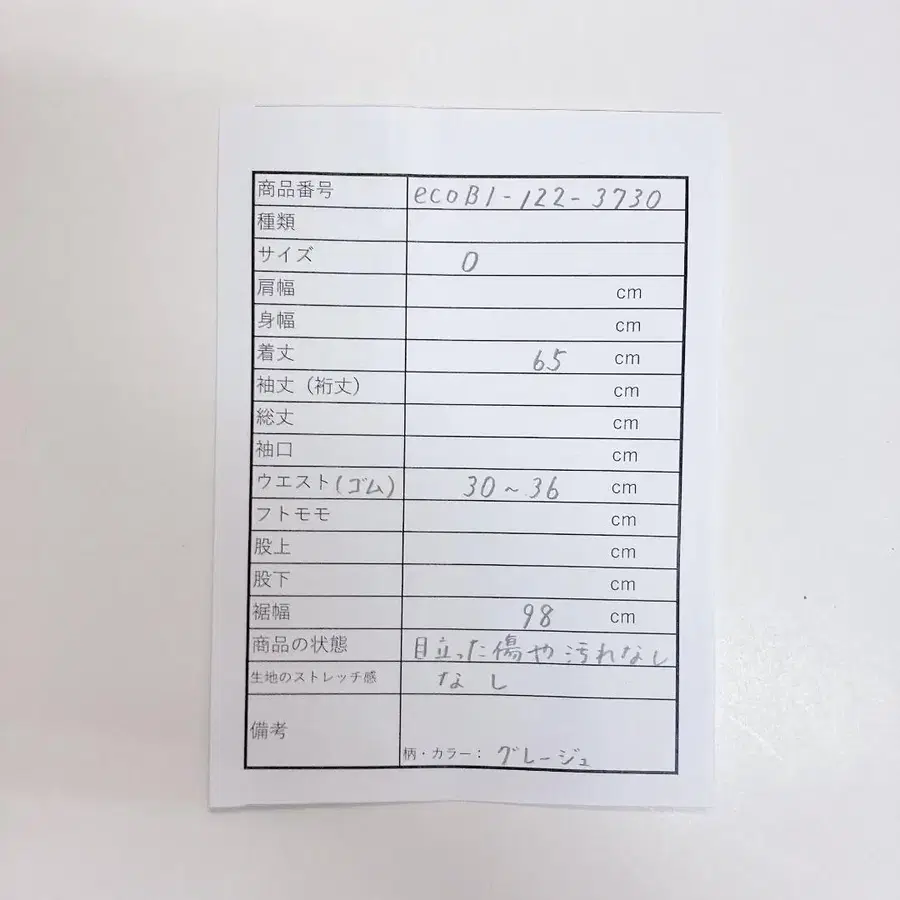 商品番号 ecoB1-122-3730
種類
サイズ 0
肩幅 cm
身幅 cm
着丈 65 cm
袖丈（裄丈） cm
総丈 cm
袖口 cm
ウエスト(ゴム) 30~36 cm
フトモモ cm
股上 cm
股下 cm
裾幅 98 cm
商品の状態 目立った傷や汚れなし
生地のストレッチ感 なし
備考
柄・カラー： グレージュ